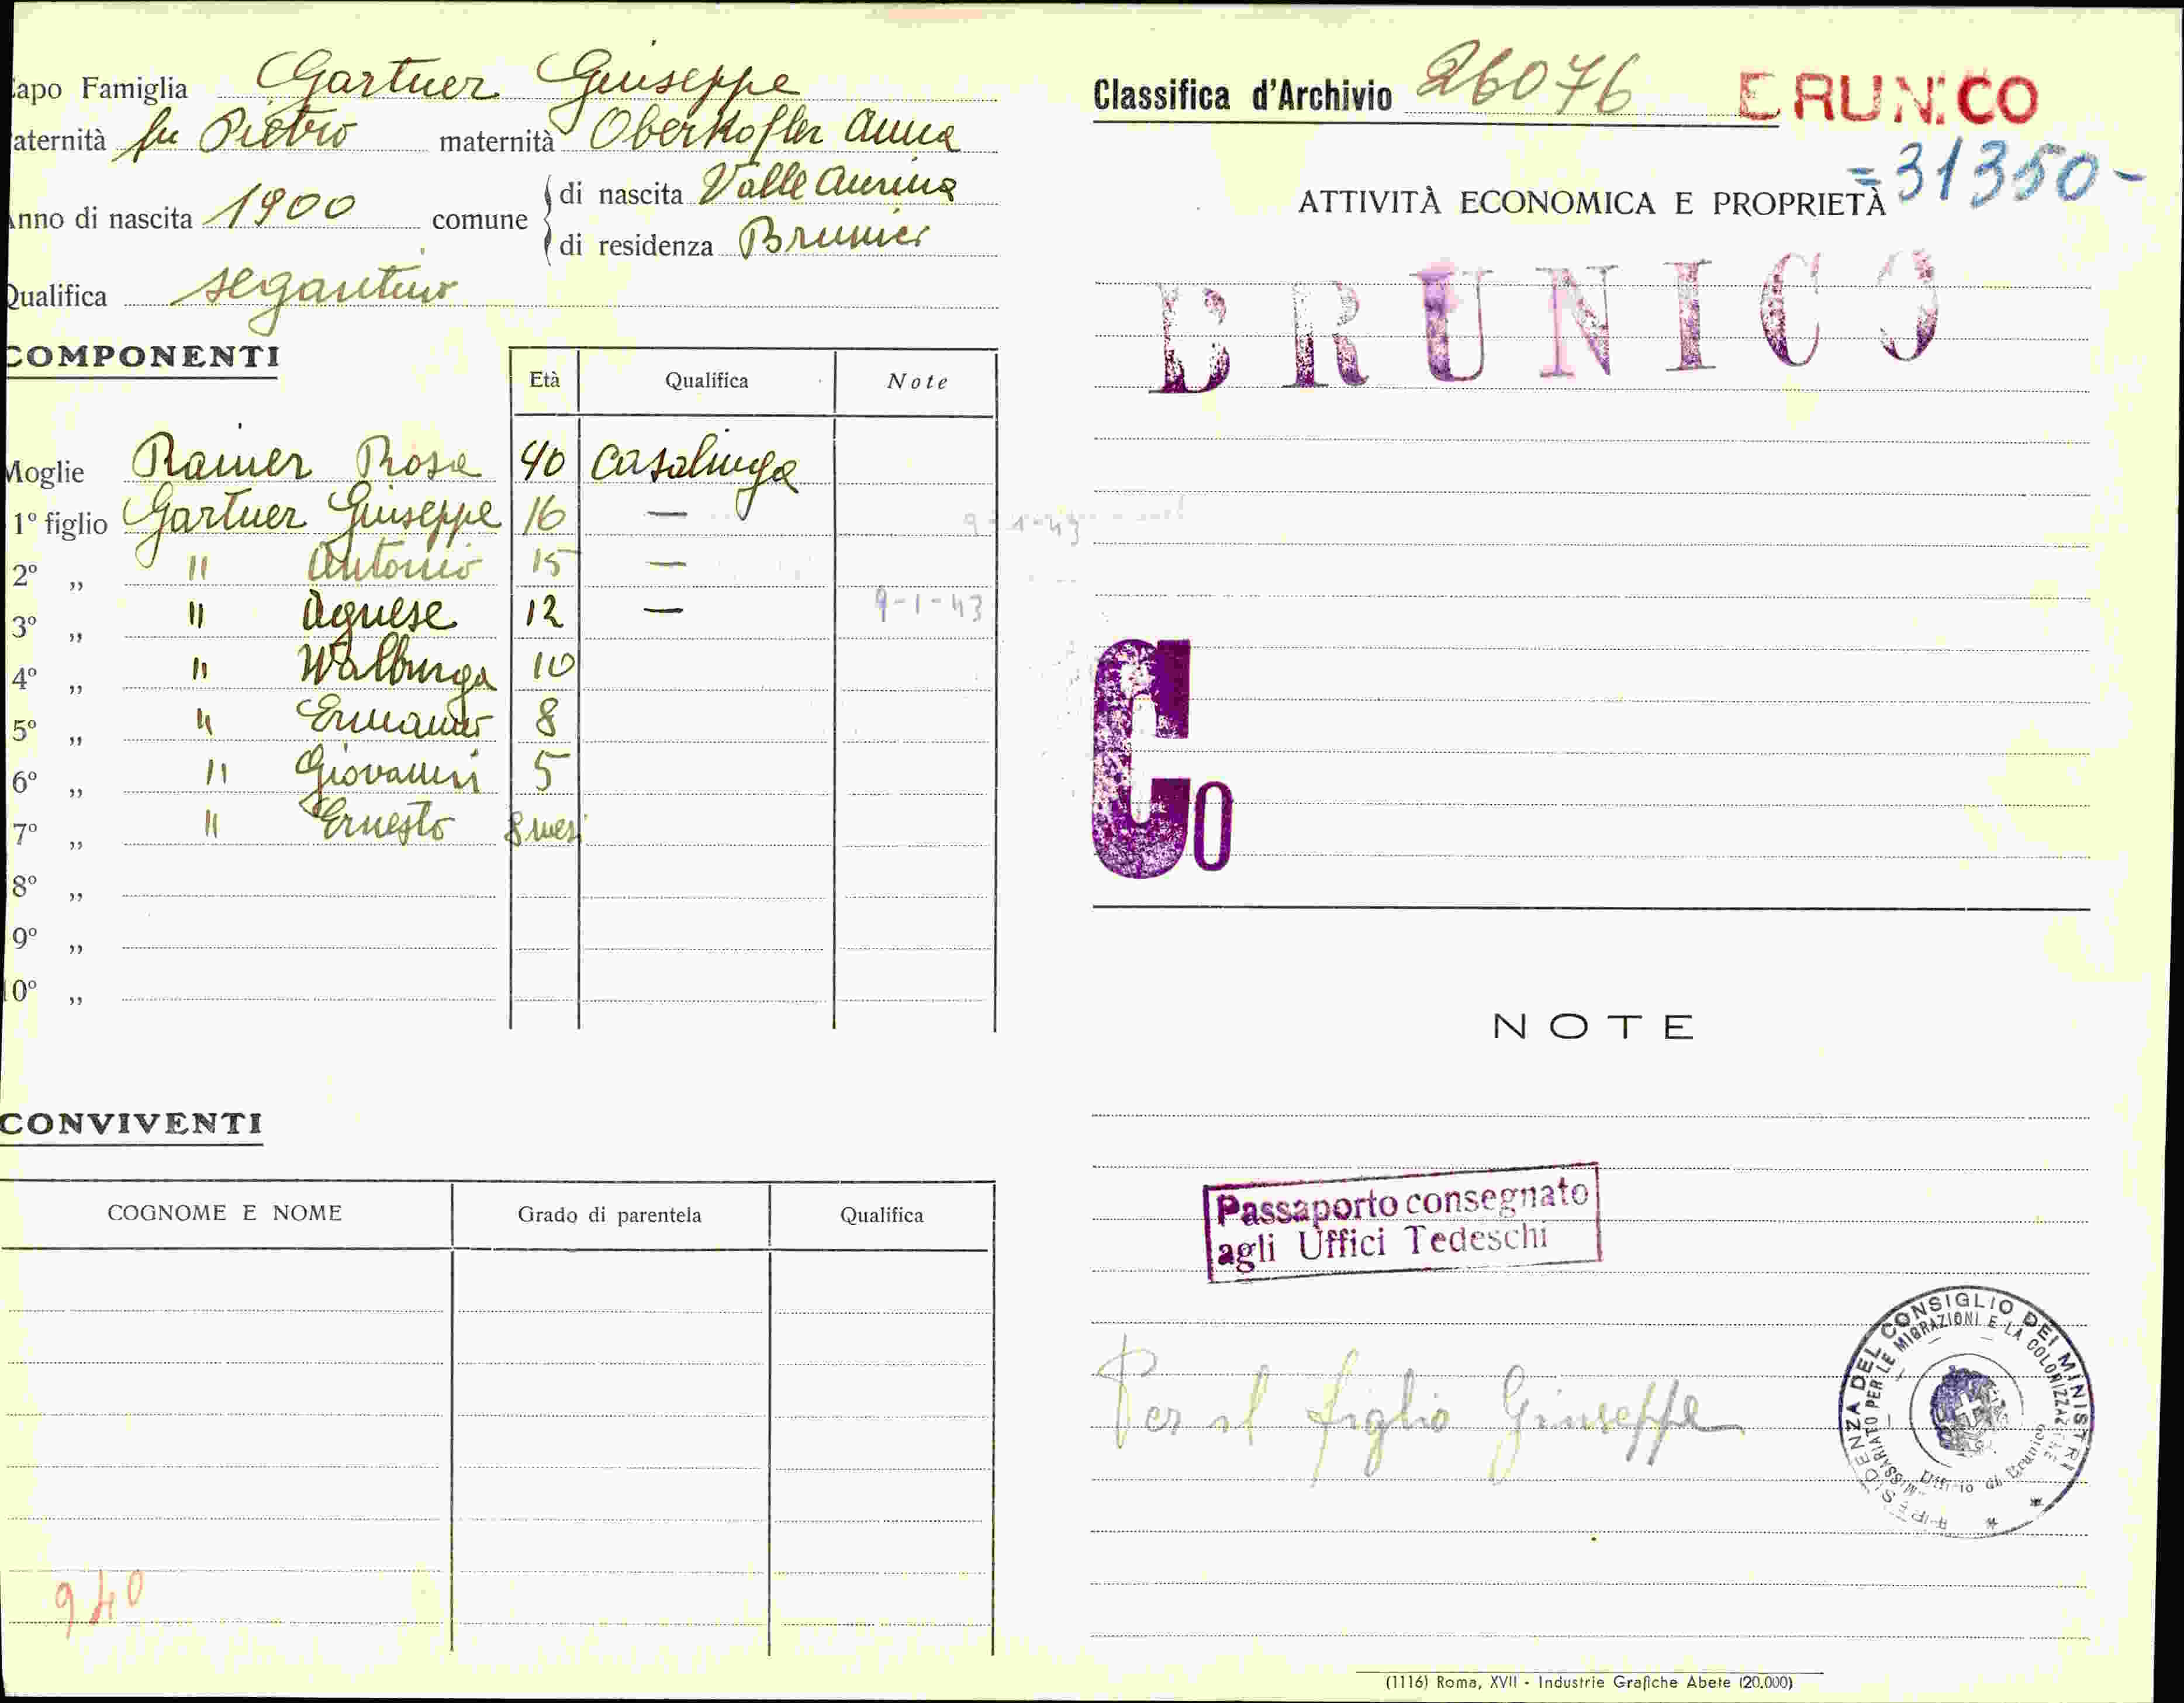 Capo Famiglia Gartner Giuseppe
Paternità fu Pietro maternità Oberkofler Anna
Anno di nascita 1900 comune di nascita Valle Aurina
di residenza Brunico
Qualifica segantino
COMPONENTI
Età Qualifica Note
Moglie Rainer Rosa 40 casalinga
1º figlio Gartner Giuseppe 16 —
2º „ " Antonio 15 —
3º „ " Agnese 12 — 9-1-43
4º „ " Walburga 10
5º „ " Ermanno 8
6º „ " Giovanni 5
7º „ " Ernesto 8 mesi
8º „
9º „
10º „
CONVIVENTI
COGNOME E NOME Grado di parentela Qualifica
940
Classifica d'Archivio 26076 BRUNICO
=31350-
ATTIVITÀ ECONOMICA E PROPRIETÀ
BRUNICO
9-1-43
Co
NOTE
Passaporto consegnato
agli Uffici Tedeschi
Per il figlio Giuseppe
PRESIDENZA DEL CONSIGLIO DEI MINISTRI
COMMISSARIATO PER LE MIGRAZIONI E LA COLONIZZAZIONE
Ufficio di Brunico
(1116) Roma, XVII - Industrie Grafiche Abete (20.000)